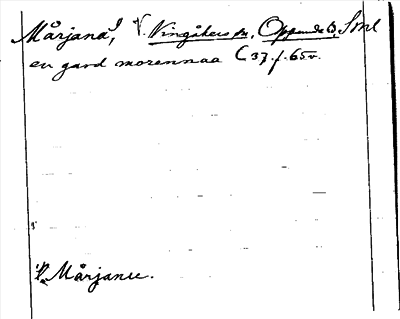 Mårjana, V. Vingåkers sn, Oppunda hd, Sml
en gard morennaa C 37 f. 65 v.
Mårjanu.